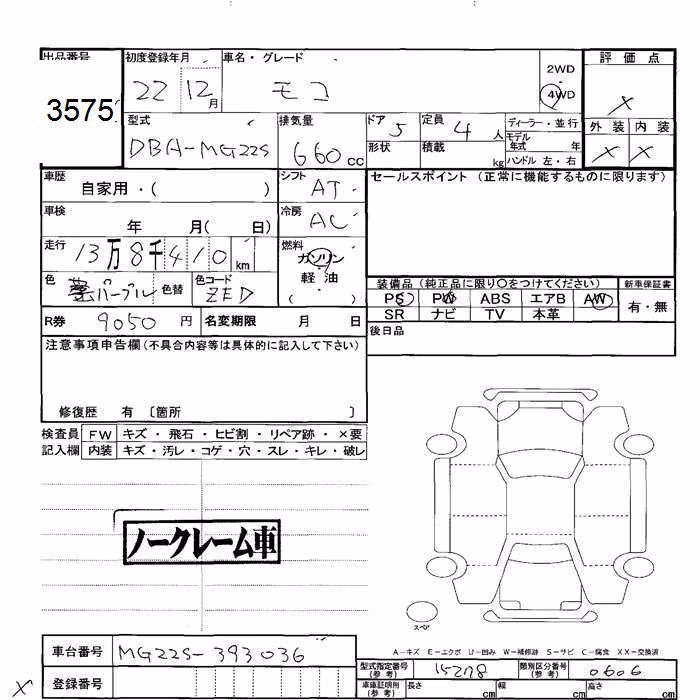 出品番号 初度登録年月 車名・グレード 評価点
3575 22 12月 モコ 2WD
4WD X
型式 排気量 ドア 定員 ディーラー・並行 外装 内装
DBA-MG22S 660cc 5 4人 モデル年式 年 X X
形状 積載 kg ハンドル 左・右
車歴 シフト セールスポイント (正常に機能するものに限ります)
自家用・( ) AT
車検 冷房
年 月( 日) AC
走行 燃料
13万8千410km ガソリン
軽油
( )
色 色替 色コード 装備品(純正品に限り○をつけてください) 新車保証書
パープル ZED PS PW ABS エアB AW 有・無
SR ナビ TV 本革
R券 9050円 名変期限 月 日 後日品
注意事項申告欄(不具合内容等は具体的に記入して下さい)
修復歴 有 〔箇所 〕
検査員 FW キズ・飛石・ヒビ割・リペア跡・×要
記入欄 内装 キズ・汚レ・コゲ・穴・スレ・キレ・破レ
ノークレーム車
スペア
A-キズ E-エクボ U-凹み W-補修跡 S-サビ C-腐食 XX-交換済
車台番号 MG22S-393036
型式指定番号(参考) 15278 類別区分番号(参考) 0606
X 登録番号
車庫証明用(参考) 長さ cm 幅 cm 高さ cm